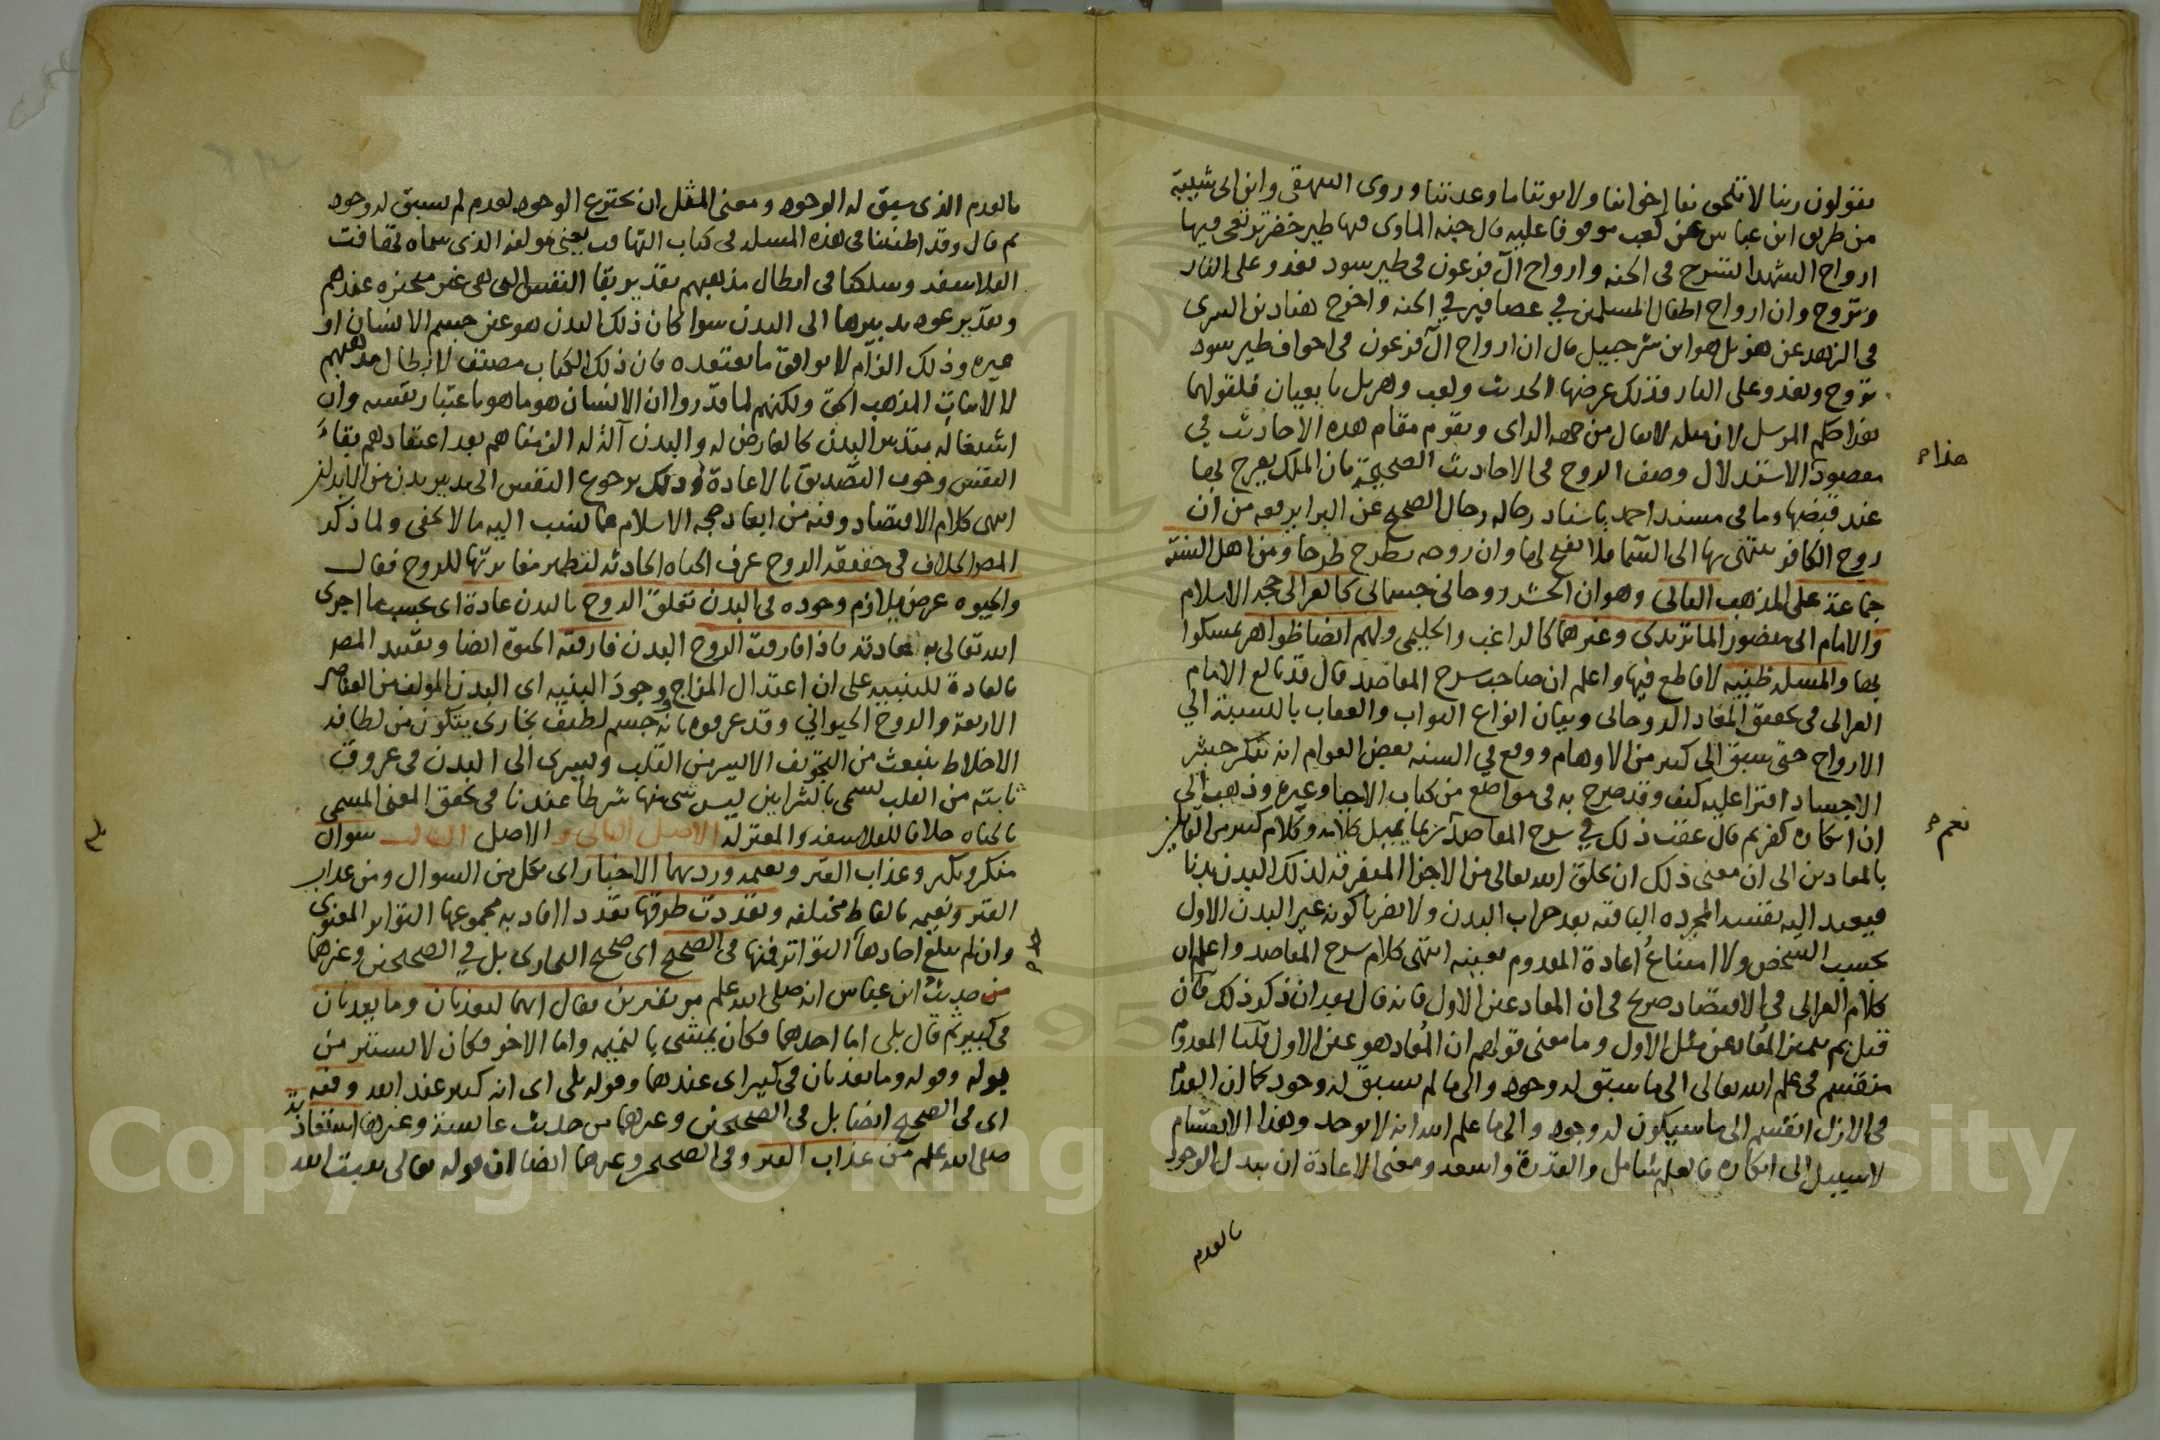 يقولون ربنا لا تلحق بنا إخواننا ولا توتنا ما وعدتنا وروى البيهقى وابن ابى شيبة
من طريق ابن عباس عن كعب موقوفا عليه قال جنه الماوى فيها طير خضر ترتقى فيها
ارواح الشهدا تسرح فى الجنه وارواح آل فرعون فى طير سود تغدو على النار
وتروح وان ارواح اطفال المسلمين في عصافير في الجنه واخرج هناد بن السرى
فى الزهد عن هزيل هو ابن شرحبيل قال ان ارواح آل فرعون فى اجواف طير سود
تروح وتغدو على النار فذلك عرضها الحديث وكعب وهزيل تابعيان فلقولهما
هذا حكم المرسل لان مثله لا يقال من جهه الراى ويقوم مقام هذه الأحاديث في
مقصود الاستدلال وصف الروح فى الاحاديث الصحيحة بان الملك يعرج بها
عند قبضها وما فى مسند احمد باسناد رجاله رجال الصحيح عن البرا يرفعه من ان
روح الكافر ينتهى بها الى السما فلا يفتح لها وان روحه تطرح طرحا ومن اهل السنة
جماعة على المذهب الثانى وهو ان الحشر روحانى جسمانى كالغزالى حجه الاسلام
والامام ابى منصور الماتريدى وغيرهما كالراغب والحليمى ولهم ايضا ظواهر تمسكوا
بها والمسله ظنية لا قاطع فيها واعلم ان صاحب شرح المقاصد قال قد بالغ الامام
الغزالى فى تحقيق المعاد الروحانى وبيان انواع الثواب والعقاب بالنسبة الي
الارواح حتى سبق الى كثير من الاوهام ووقع في السنه بعض العوام انه ينكر حشر
الاجساد افترا عليه كيف وقد صرح به فى مواضع من كتاب الاحيا وغيره وذهب الي
ان انكاره كفر ثم قال عقب ذلك في شرح المقاصد ربما يميل كلامه وكلام كثير من القائلين
بالمعادين الى ان معنى ذلك ان يخلق الله تعالى من الاجزا المتفرقة لذلك البدن بدنا
فيعيد اليه نفسه المجرده الباقيه بعد خراب البدن ولا يضرنا كونه غير البدن الاول
بحسب الشخص ولا امتناعُ اعادة المعدوم بعينه انتهى كلام شرح المقاصد واعلم ان
كلام الغزالى فى الاقتصاد صريح فى ان المعاد عين الاول فانه قال بعد ان ذكر ذلك فان
قيل بم يتميز المُعاد عن مثل الاول وما معنى قولهم ان المُعاد هو عين الاول قلنا المعدوم
منقسم فى علم الله تعالى الى ما سبق له وجود والى ما لم يسبق له وجود كما ان العدم
فى الازل انقسم الى ما سيكون له وجود والى ما علم الله انه لا يوجد وهذا الانقسام
لا سبيل الى انكاره فالعلم شامل والقدرة واسعه ومعنى الاعادة ان يبدل الوجود
بالعدم
هذا
نعم
بالعدم الذى سبق له الوجود ومعنى المثل ان يخترع الوجود لعدم لم يسبق له وجود
ثم قال وقد اطنبنا فى هذه المسله فى كتاب التهافت يعنى مولفه الذى سماه تهافت
الفلاسفه وسلكنا فى ابطال مذهبهم تقدير بقا النفس التى هى غير متحيزه عندهم
وتقدير عود تدبيرها الى البدن سوا كان ذلك البدن هو عين جسم الانسان او
غيره وذلك الزام لا يوافق ما نعتقده فان ذلك الكتاب مصنف لابطال مذهبهم
لا لاثبات المذهب الحق ولكنهم لما قدروا ان الانسان هو ما هو باعتبار نفسه وان
اشتغاله بتدبير البدن كالعارض له والبدن آلة له الزمناهم بعد اعتقادهم بقاءَ
النفس وجوب التصديق بالاعادة وذلك برجوع النفس الى تدبير بدن من الابدان
انتهى كلام الاقتصاد وفيه من ابعاد حجه الاسلام عما ينسب اليه ما لا يخفى ولما ذكر
المصر الخلاف فى حقيقه الروح عرف الحياه الحادثه لتظهر مغايرتها للروح فقال
والحيوه عرض يلازم وجوده فى البدن تعلق الروح بالبدن عادة اى بحسب ما اجرى
الله تعالى به عادته فاذا فارقت الروح البدن فارقته الحيوة ايضا وتقييد المصر
بالعادة للتنبيه على ان اعتدال المزاج ووجود البنيه اى البدن المولف من العناصر
الاربعة والروح الحيواني وقد عرفوه بانه جسم لطيف بخارى يتكون من لطافه
الاخلاط ينبعث من التجويف الايسر من القلب ويسرى الى البدن فى عروق
نابته من القلب تسمى بالشرايين ليس شى منها شرطا عندنا فى تحقق المعنى المسمى
بالحياه خلافا للفلاسفه والمعتزله الاصل الثانى و الاصل الثالث سوال
منكر ونكير وعذاب القبر ونعيمه ورد بهما الاخبار اى بكل من السوال ومن عذاب
القبر ونعيمه بالفاظ مختلفه وتعددت طرقها تعددا افاد به مجموعها التواتر المعنوى
وان لم يبلغ احادها التواتر فمنها فى الصحيح اى صحيح البخارى بل في الصحيحين وغيرهما
من حديث ابن عباس انه صلى الله علم مر بقبرين فقال انهما ليعذبان وما يعذبان
فى كبير ثم قال بلى اما احدهما فكان يمشى بالنميمه واما الاخر فكان لا يستتر من
بوله وقوله وما يعذبان فى كبير اى عندهما وقوله بلى اى انه كبير عند الله وفيه
اى فى الصحيح ايضا بل فى الصحيحين وغيرهما من حديث عايشة وغيرها استعاذته
صلى الله علم من عذاب القبر وفى الصحيحين وغيرهما ايضا ان قوله تعالى يثبت الله
Copyright © King Saud University